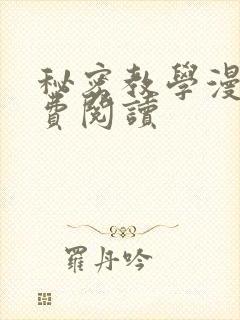 秘密教學漫
費閱讀
羅丹吟